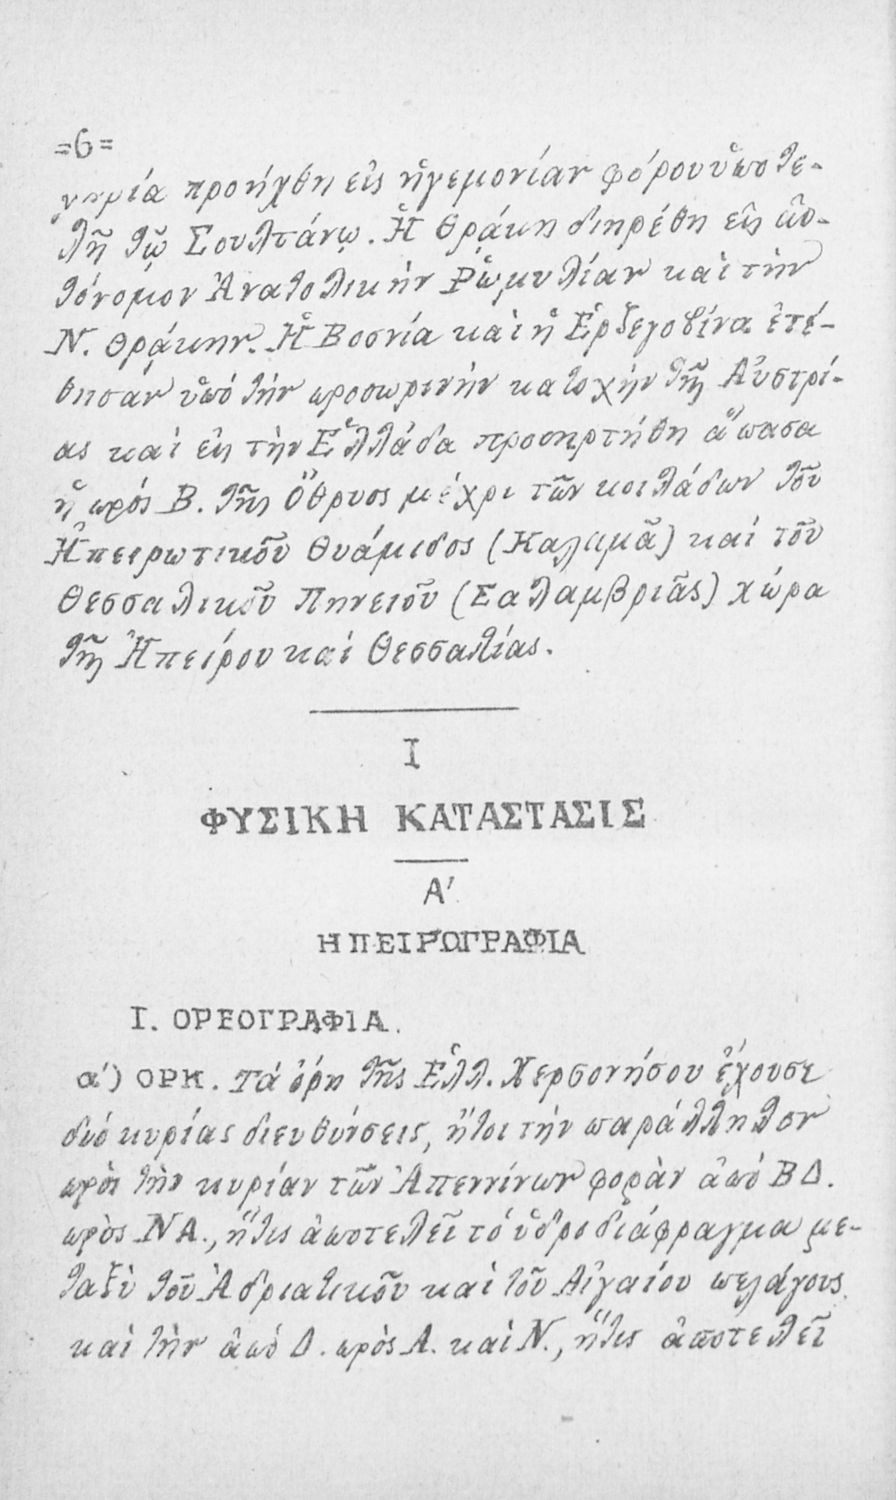 =6=
προήχθη εἰς ἡγεμονίαν φόρου ὑποτε-
λῆ τῷ Σουλτάνῳ. Ἡ Θράκη διηρέθη εἰς αὐ-
τόνομον Ἀνατολικὴν Ῥωμυλίαν καὶ τὴν
Ν. Θράκην. Ἡ Βοσνία καὶ ἡ Ἐρζεγοβίνα ἐτέ-
θησαν ὑπό τήν προσωρινὴν κατοχὴν τῆς Αὐστρί-
ας καὶ εἰς τὴν Ἑλλάδα προσηρτήθη ἅπασα
ἡ πρός Β. τῆς Ὄθρυος μέχρι τῶν κοιλάδων τοῦ
Ἠπειρωτικοῦ Θυάμιδος (Καλαμᾶ) καί τοῦ
Θεσσαλικοῦ Πηνειοῦ (Σαλαμβριᾶς) χώρα
τῆς Ἠπείρου καί Θεσσαλίας.
Ι
ΦΥΣΙΚΗ ΚΑΤΑΣΤΑΣΙΣ
Α'
ΗΠΕΙΡΩΓΡΑΦΙΑ
Ι. ΟΡΕΟΓΡΑΦΙΑ.
α') ΟΡΗ. Τά ὄρη τῆς Ἑλλ. Χερσονήσου ἔχουσι
δυό κυρίας διευθύνσεις, ἤτοι τήν παράλληλον
πρὸς τὴν κυρίαν τῶν Ἀπεννίνων φορὰν ἀπό ΒΔ.
πρὸς ΝΑ., ἥτις ἀποτελεῖ τό ὑδροδιάφραγμα με-
ταξὺ τοῦ Ἀδριατικοῦ καὶ τοῦ Αἰγαίου πελάγους
καὶ τὴν ἀπό Δ. πρὸς Α. καὶ Ν., ἥτις ἀποτελεῖ